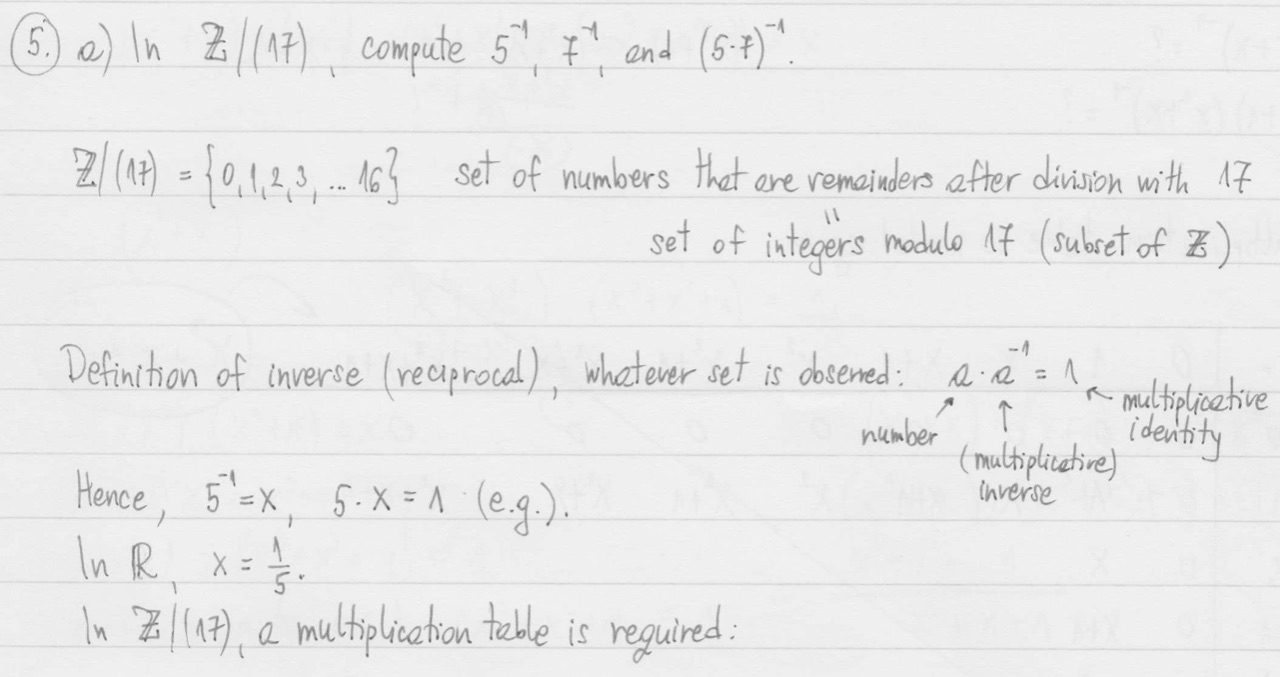 5. a) In ℤ/(17), compute 5⁻¹, 7⁻¹, and (5·7)⁻¹.
ℤ/(17) = {0,1,2,3, ... 16} set of numbers that are remainders after division with 17
"
set of integers modulo 17 (subset of ℤ)
Definition of inverse (reciprocal), whatever set is observed: a · a⁻¹ = 1
number
(multiplicative) inverse
multiplicative identity
Hence, 5⁻¹ = x, 5 · x = 1 (e.g.).
In ℝ, x = 1/5.
In ℤ/(17), a multiplication table is required: